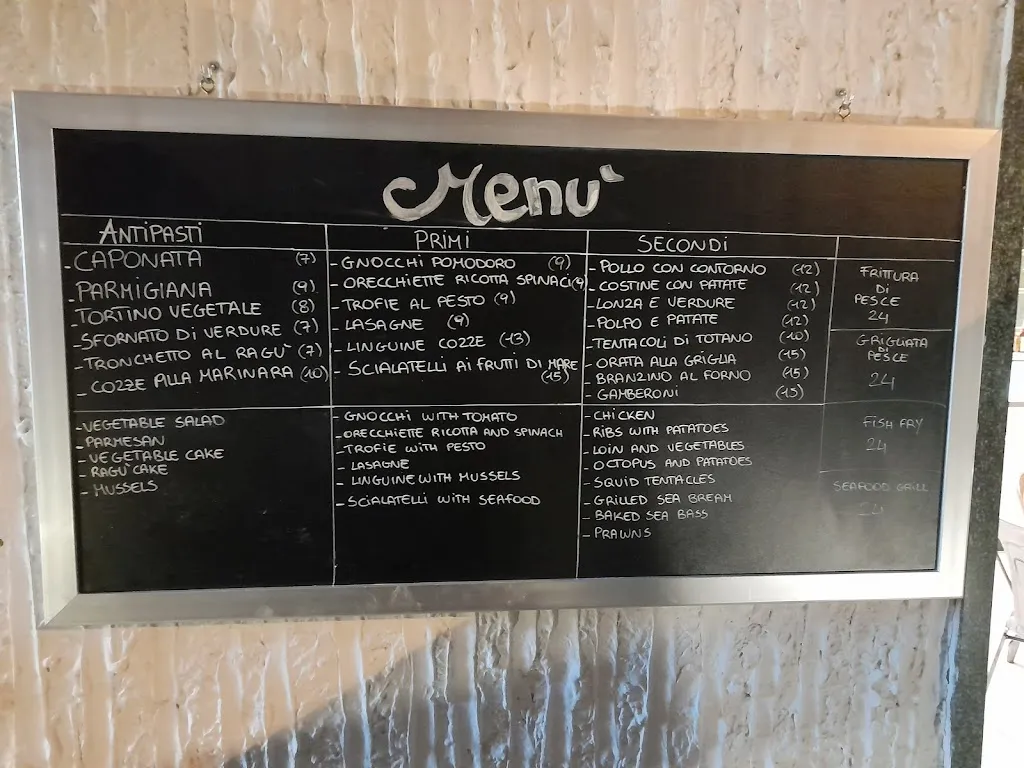 Menu'
ANTIPASTI
- CAPONATA (7)
- PARMIGIANA (9)
- TORTINO VEGETALE (8)
- SFORNATO DI VERDURE (7)
- TRONCHETTO AL RAGU' (7)
- COZZE ALLA MARINARA (10)
PRIMI
- GNOCCHI POMODORO (9)
- ORECCHIETTE RICOTTA SPINACI (9)
- TROFIE AL PESTO (9)
- LASAGNE (9)
- LINGUINE COZZE (13)
- SCIALATELLI AI FRUTTI DI MARE
(15)
SECONDI
- POLLO CON CONTORNO (12)
- COSTINE CON PATATE (12)
- LONZA E VERDURE (12)
- POLPO E PATATE (12)
- TENTACOLI DI TOTANO (10)
- ORATA ALLA GRIGLIA (15)
- BRANZINO AL FORNO (15)
- GAMBERONI (15)
FRITTURA
DI
PESCE
24
GRIGLIATA
DI
PESCE
24
- VEGETABLE SALAD
- PARMESAN
- VEGETABLE CAKE
- RAGU' CAKE
- MUSSELS
- GNOCCHI WITH TOMATO
- ORECCHIETTE RICOTTA AND SPINACH
- TROFIE WITH PESTO
- LASAGNE
- LINGUINE WITH MUSSELS
- SCIALATELLI WITH SEAFOOD
- CHICKEN
- RIBS WITH PATATOES
- LOIN AND VEGETABLES
- OCTOPUS AND PATATOES
- SQUID TENTACLES
- GRILLED SEA BREAM
- BAKED SEA BASS
- PRAWNS
FISH FRY
24
SEAFOOD GRILL
24